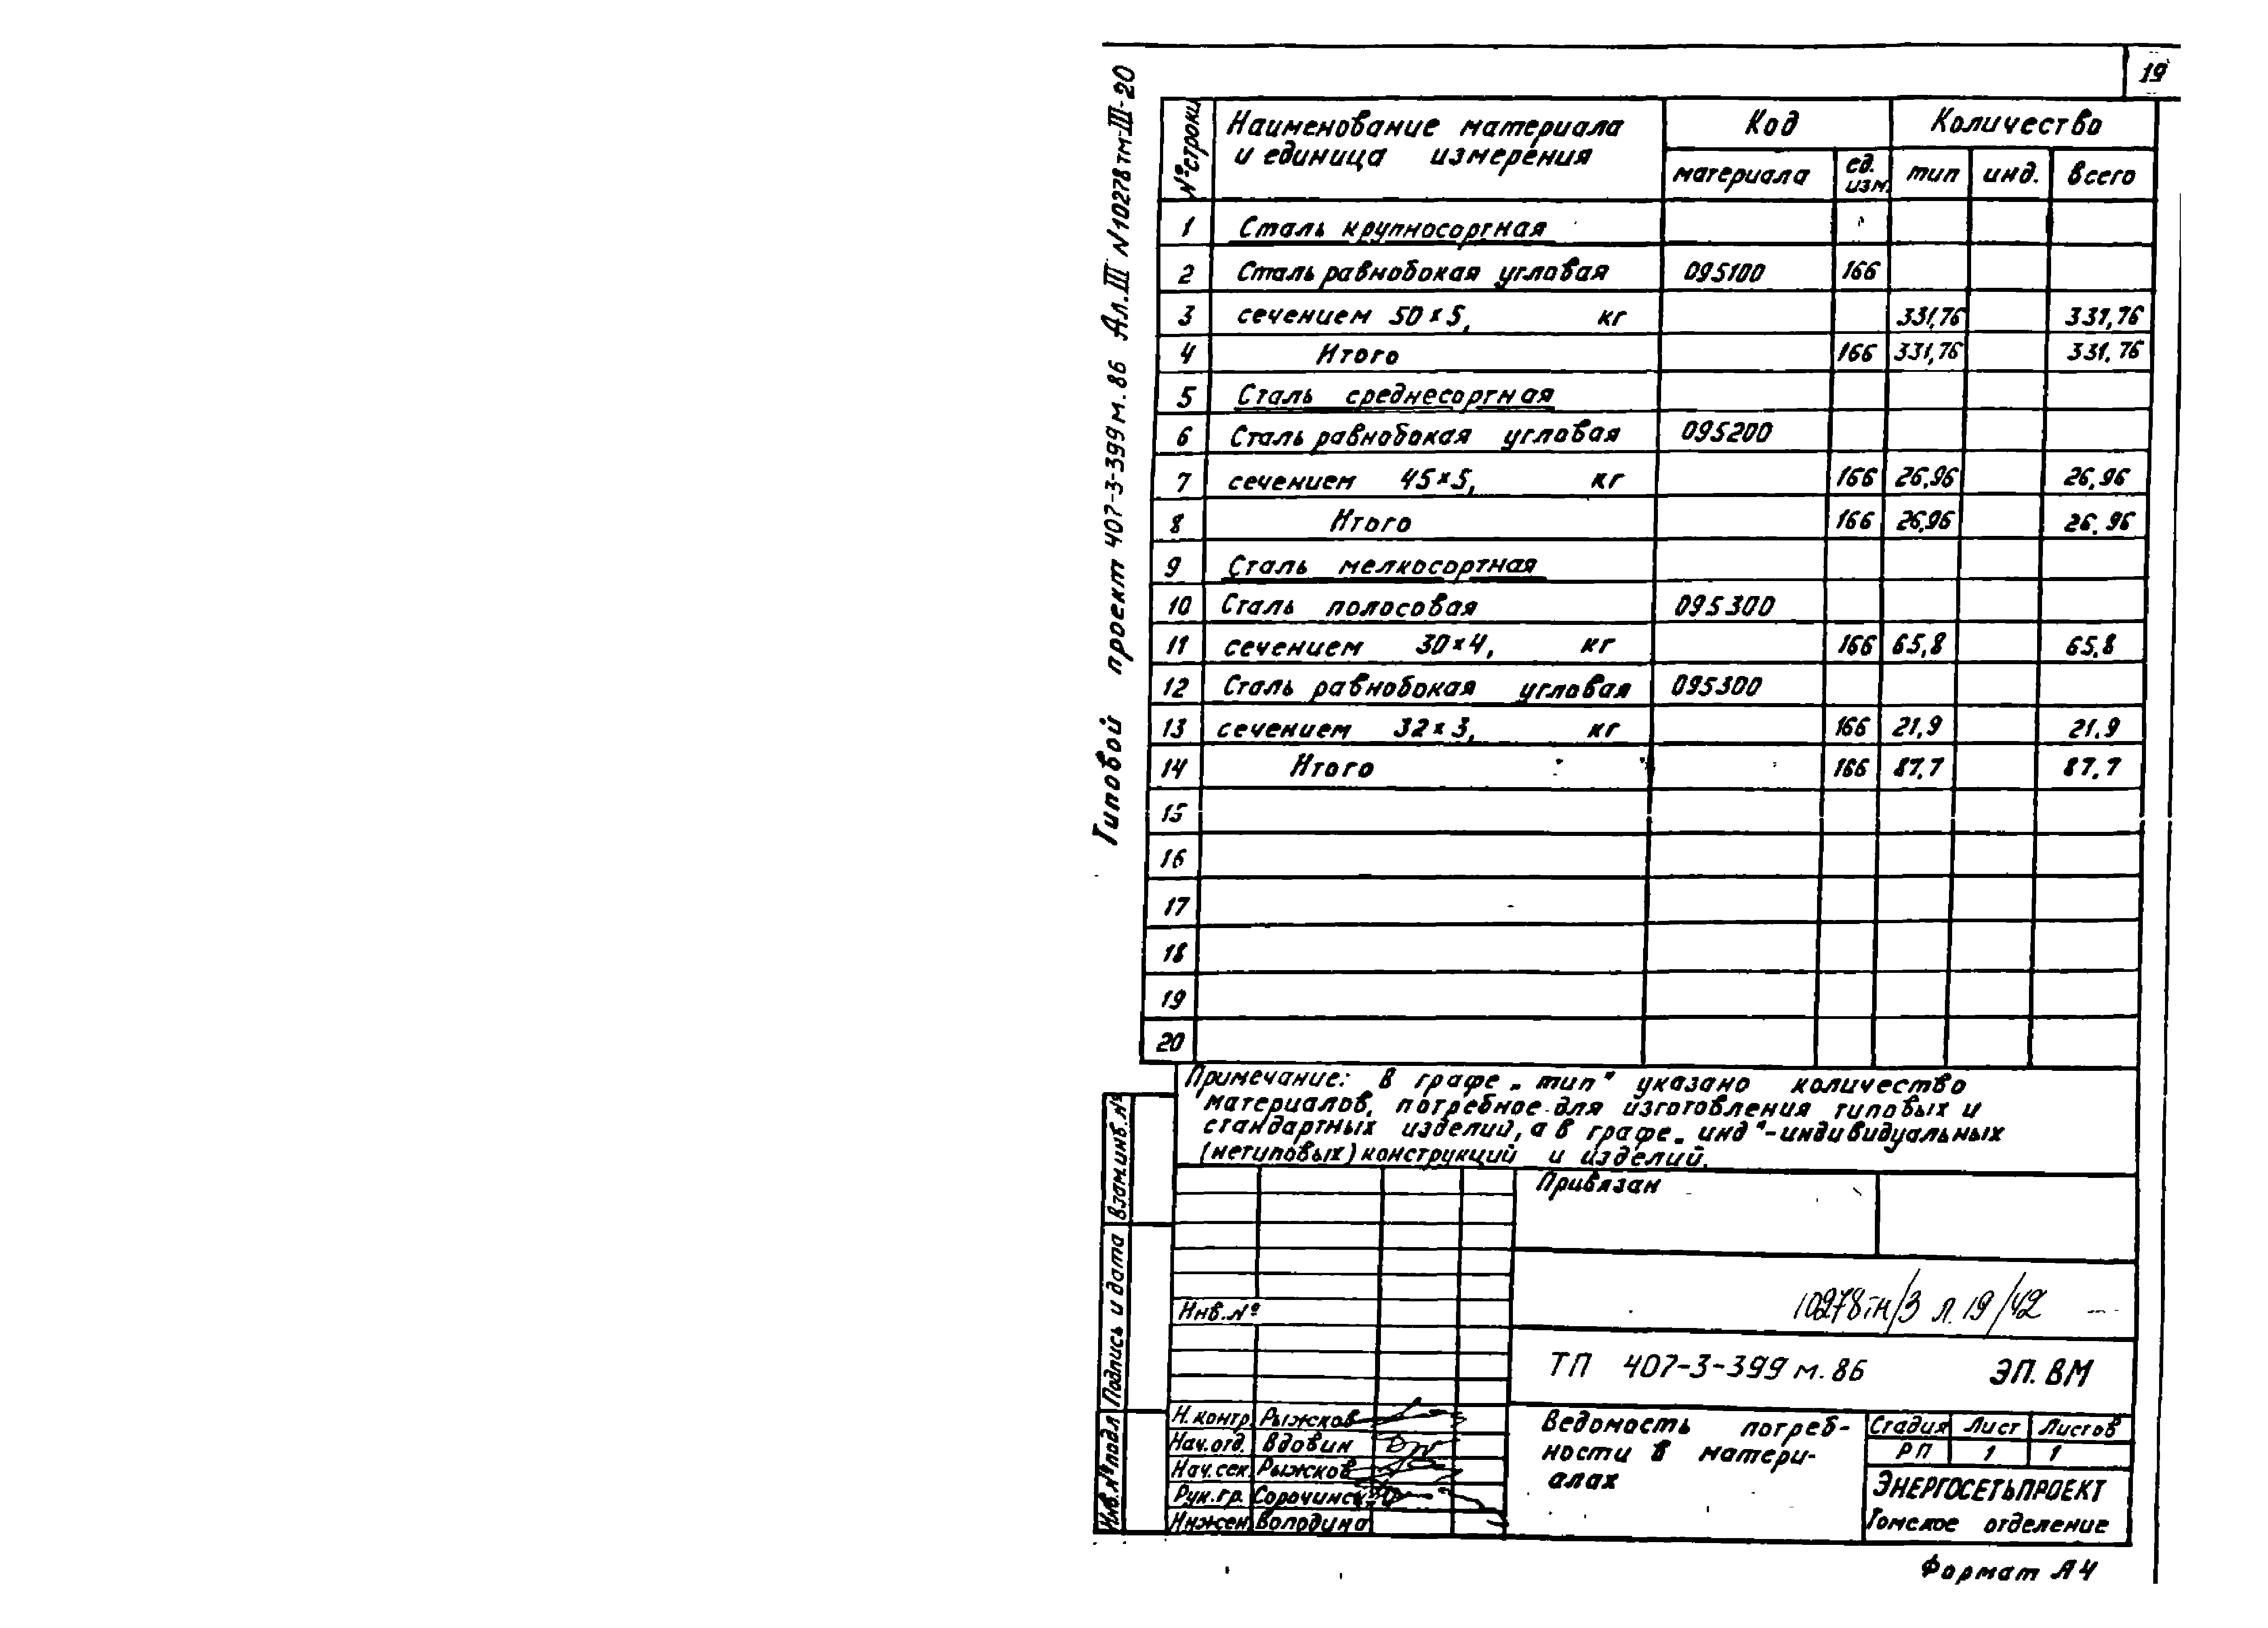 19
Типовой проект 407-3-399м.86 Ал.III N10278тм-III-20
№ строки Наименование материала и единица измерения Код Количество
материала ед. изм. тип инд. всего
1 Сталь крупносортная
2 Сталь равнобокая угловая 095100 166
3 сечением 50×5, кг 331,76 331,76
4 Итого 166 331,76 331,76
5 Сталь среднесортная
6 Сталь равнобокая угловая 095200
7 сечением 45×5, кг 166 26,96 26,96
8 Итого 166 26,96 26,96
9 Сталь мелкосортная
10 Сталь полосовая 095300
11 сечением 30×4, кг 166 65,8 65,8
12 Сталь равнобокая угловая 095300
13 сечением 32×3, кг 166 21,9 21,9
14 Итого 166 87,7 87,7
15
16
17
18
19
20
Примечание: В графе „тип" указано количество
материалов, потребное для изготовления типовых и
стандартных изделий, а в графе „инд"-индивидуальных
(нетиповых) конструкций и изделий.
Взам.инв.№
Подпись и дата
Инв.№ подл
Привязан
Инв.№
10278тм/3 л.19/42
ТП 407-3-399м.86 ЭП.ВМ
Н.контр. Рыжков
Нач.отд. Вдовин
Нач.сек. Рыжков
Рук.гр. Сорочинс
Инжен. Володина
Ведомость потреб-
ности в матери-
алах
Стадия Лист Листов
РП 1 1
ЭНЕРГОСЕТЬПРОЕКТ
Томское отделение
Формат А4